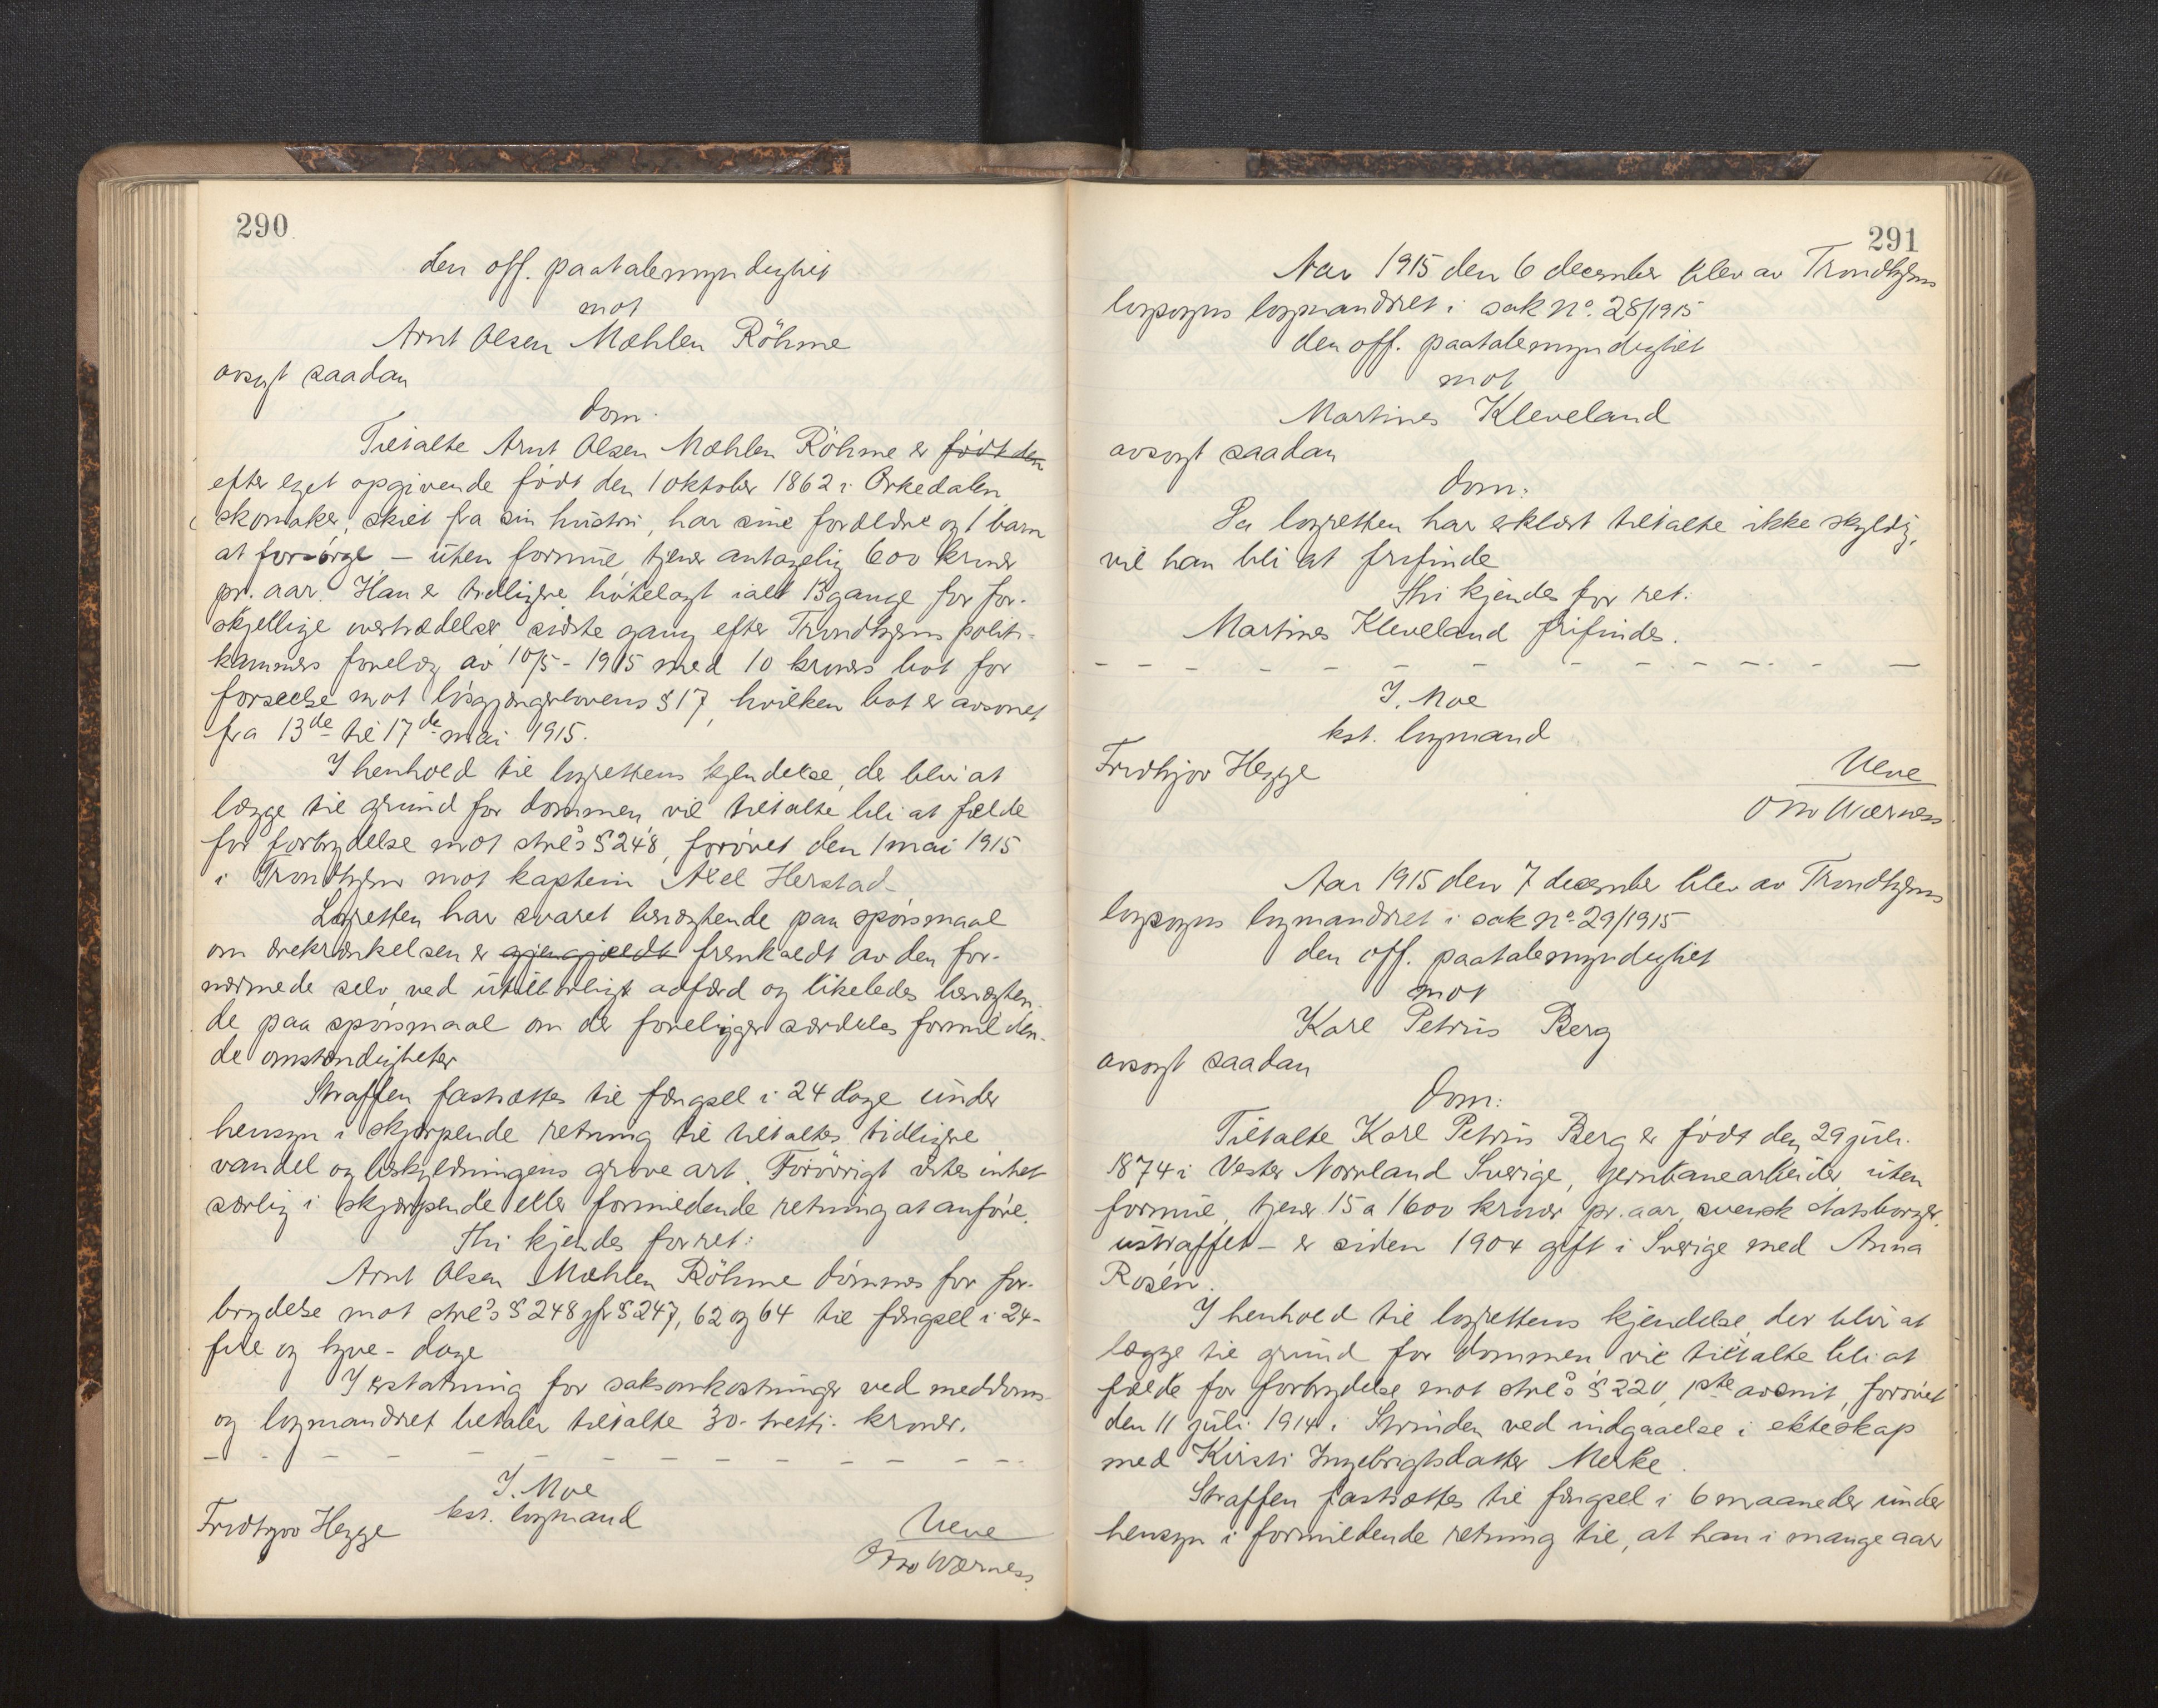 290
den off. paatalemyndighet
mot
Arnt Olsen Mæhlen Röhme
avsagt saadan
dom.
Tiltalte Arnt Olsen Mæhlen Röhme er född den
efter eget opgivende född den 1 oktober 1862 i Orkedalen
skomaker, skilt fra sin hustru, har sine forældre og 1 barn
at forsörge – uten formue, tjener antagelig 600 kroner
pr. aar. Han er tidligere bötelagt ialt 13 gange for for-
skjellige overtrædelser sidste gang efter Trondhjems politi-
kammers forelæg av 10/5 - 1915 med 10 kroners bot for
forseelse mot lösgjængerlovens § 17, hvilken bot er avsonet
fra 13de til 17de mai 1915.
I henhold til lagrettens kjendelse, der blir at
lægge til grund for dommen vil tiltalte bli at fælde
for forbrydelse mot strl's § 248, forövet den 1 mai 1915
i Trondhjem mot kaptein Axel Herstad.
Lagretten har svaret benægtende paa spörsmaal
om ærekrænkelsen er gjengjældt fremkaldt av den for-
nærmede selv ved utilbörligt adfærd og likeledes benægten-
de paa spörsmaal om der foreligger særdeles formilden-
de omstændigheter
Straffen fastsættes til fængsel i 24 dage under
hensyn i skjærpende retning til tiltaltes tidligere
vandel og beskyldningens grove art. Forövrigt vites intet
særlig i skjærpende eller formildende retning at anföre.
Thi kjendes for ret:
Arnt Olsen Mæhlen Röhme dömmes for for-
brydelse mot strl's § 248 jfr § 247, 62 og 64 til fængsel i 24-
fire og tyve - dage
I erstatning for saksomkostninger ved meddoms-
og lagmandsret betaler tiltalte 30 - tretti - kroner.
I. Moe
kst. lagmand
Fridtjov Hegge
Ueve
Otto Wærness
291
Aar 1915 den 6 december blev av Trondhjems
lagsogns lagmandsret i sak no. 28/1915
den off. paatalemyndighet
mot
Martines Kleveland
avsagt saadan
dom:
Da lagretten har erklært tiltalte ikke skyldig,
vil han bli at frifinde
Thi kjendes for ret:
Martines Kleveland frifindes.
I. Moe
kst. lagmand
Fridtjov Hegge
Ueve
Otto Wærness
Aar 1915 den 7 december blev av Trondhjems
lagsogns lagmandsret i sak no. 29/1915
den off. paatalemyndighet
mot
Karl Petrus Berg
avsagt saadan
dom:
Tiltalte Karl Petrus Berg er född den 29 juli
1874 i Vester Norrland Sverige, jernbanearbeider, uten
formue, tjener 15 a 1600 kroner pr. aar, svensk statsborger,
ustraffet – er siden 1904 gift i Sverige med Anna
Rosén.
I henhold til lagrettens kjendelse, der blir at
lægge til grund for dommen vil tiltalte bli at
fælde for forbrydelse mot strl's § 220, 1ste avsnit, forövet
den 11 juli 1914 i Strinden ved indgaaelse i ekteskap
med Kirsti Ingebrigtsdatter Merke.
Straffen fastsættes til fængsel i 6 maaneder under
hensyn i formildende retning til, at han i mange aar